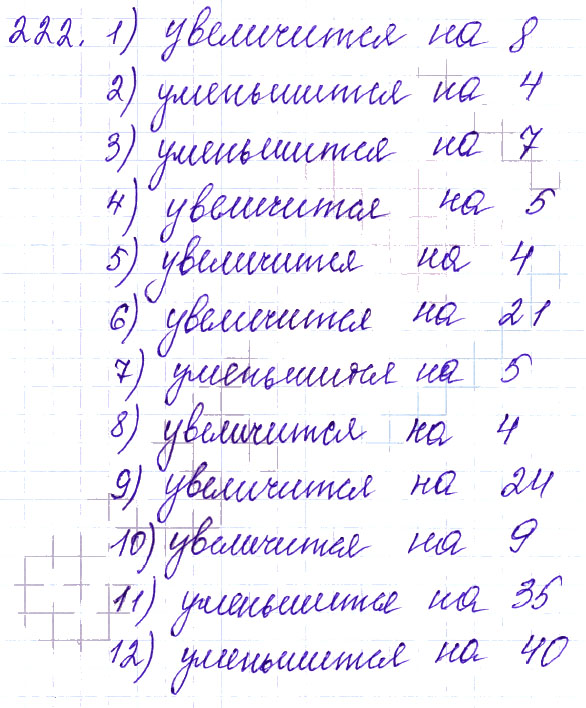 222. 1) увеличится на 8
2) уменьшится на 4
3) уменьшится на 7
4) увеличится на 5
5) увеличится на 4
6) увеличится на 21
7) уменьшится на 5
8) увеличится на 4
9) увеличится на 24
10) увеличится на 9
11) уменьшится на 35
12) уменьшится на 40